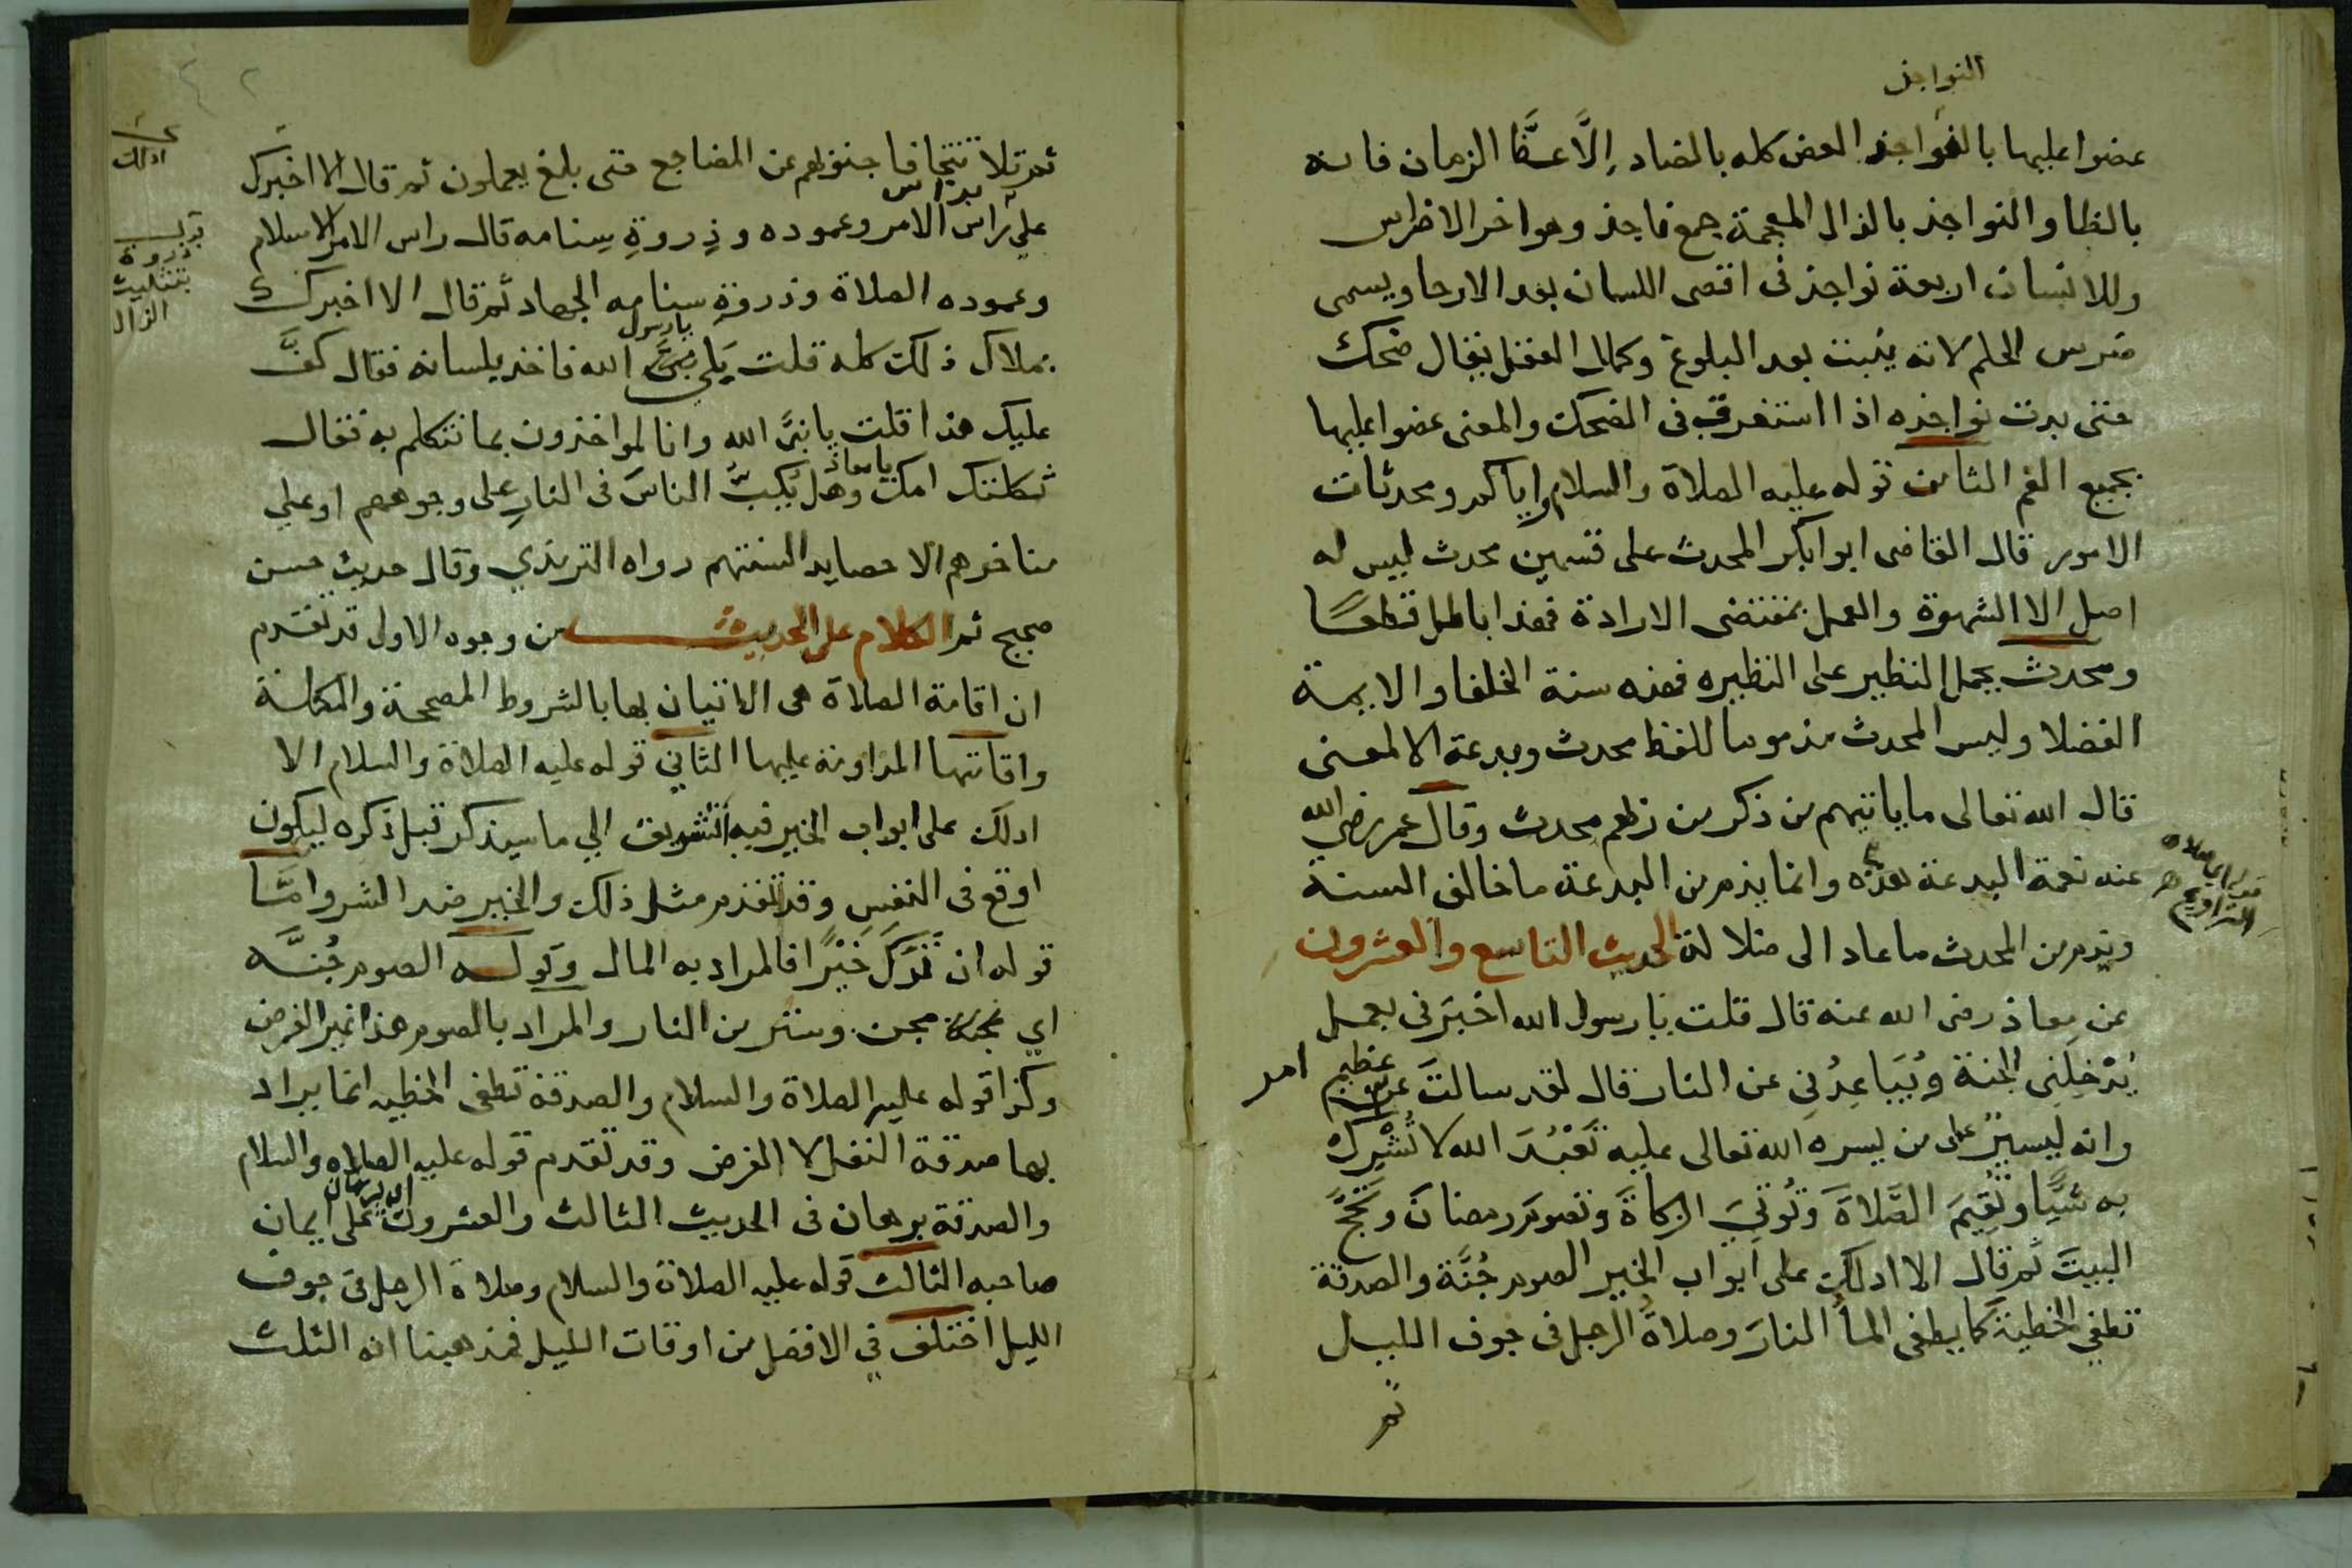 النواجذ
عضوا عليها بالنواجذ العض كله بالضاد إلَّا عَظَّ الزمان فانه
بالظا والنواجذ بالذال المعجمة جمع ناجذ وهو اخر الاضراس
وللانسان اربعة نواجذ في اقصى اللسان بعد الارحا ويسمى
ضرس الحلم لانه ينبت بعد البلوغ وكمال العقل يقال ضحك
حتى بدت نواجذه اذا استغرق في الضحك والمعنى عضوا عليها
بجميع الفم الثامن قوله عليه الصلاة والسلام واياكم ومحدثات
الامور قال القاضى ابوا بكر المحدث على قسمين محدث ليس له
اصل الا الشهوة والعمل بمقتضى الارادة فهذا باطل قطعًا
ومحدث بحمل النظير على النظيره فهذه سنة الخلفا والايمة
الفضلا وليس المحدث مذموما للفظ محدث وبدعة الا لمعنى
قال الله تعالى ما ياتيهم من ذكر من ربهم محدث وقال عمر رضي الله
عنه نعمة البدعة هذه وانما يذم من البدعة ما خالف السنة
قوله اي صلاه
التراويح
ويذم من المحدث ما عاد الى ضلالة الحديث التاسع والعشرون
عن معاذ رضى الله عنه قال قلت يا رسول الله اخبرَنى بعمل
يُدْخِلُنِى الجنة وَيُبَاعِدُنِي عن النار قال لقد سالتَ عن عظيم امر
وانه ليسيرٌ على من يسره الله تعالى عليه تَعْبُدَ الله لا تُشْرِك
به شيًّا وتُقِيمَ الصَّلاةَ وتُوتِيَ الزكاةَ وتصومَ رمضانَ وتَحُجَّ
البيتَ ثم قال الا ادلك على ابواب الخير الصوم جُنَّة والصدقة
تطفي الخطية كما يطفى المأُ النارَ وصلاةُ الرجل في جوف الليل
ثم
ثم تلا تتجافا جنوبهم عن المضاجع حتى بلغ يعملون ثم قال الا اخبرك
ادلك
على راس الامر وعموده وذِروةِ سِنامه قال راس الامر الاسلام
براس
وعموده الصلاة وذروة سنامه الجهاد ثم قال الا اخبرك
ذروة
بتثليث
الذال
بملاك ذلك كله قلت بَلى يا رسول الله فاخذ بلسانه فقال كفَّ
عليك هذا قلت يا نبيَّ الله وانا لمواخذون بما نتكلم به فقال
ثكلتك امك يا معاذ وهل يَكُبُّ الناسَ في النارِ على وجوههم او على
مناخرهم الا حصايد السنتهم رواه الترمذي وقال حديث حسن
صحيح ثم الكلام على الحديث من وجوه الاول قد تقدم
ان اقامة الصلاة هى الاتيان بها بالشروط المصححة والمكملة
واقامتها المداومة عليها الثاني قوله عليه الصلاة والسلام الا
ادلك على ابواب الخير فيه التشويق الي ما سيذكر قبل ذكره ليكون
اوقع في النفسِ وقد تقدم مثل ذلك والخير ضد الشر وامَّا
قوله ان تَرَكَ خَيْرًا فالمراد به المال وقوله الصوم جُنَّه
اي مجن وستر من النار والمراد بالصوم هذا غير الفرض
وكذا قوله عليه الصلاة والسلام والصدقة تطفى الخطيه انما يراد
بها صدقة النفل لا الفرض وقد تقدم قوله عليه الصلاه والسلام
والصدقة برهان في الحديث الثالث والعشرون اي برهان على ايمان
صاحبه الثالث قوله عليه الصلاة والسلام وصلاة الرجل في جوف
الليل اختلف في الافضل من اوقات الليل فمذهبنا انه الثلث